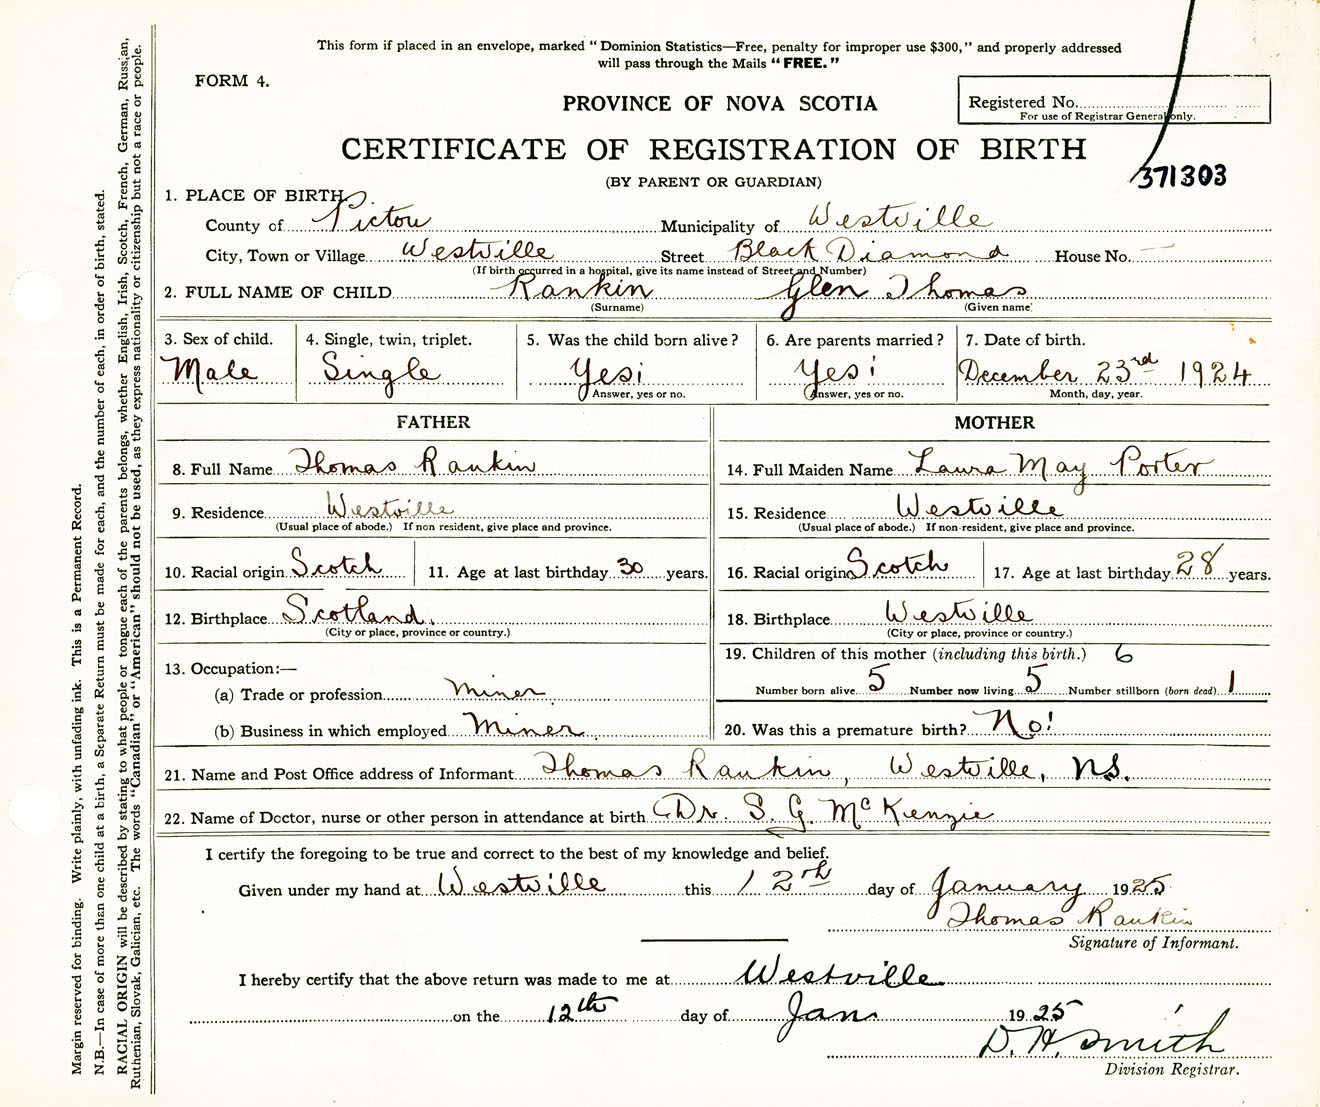 This form if placed in an envelope, marked "Dominion Statistics—Free, penalty for improper use $300," and properly addressed
will pass through the Mails "FREE."
FORM 4.
PROVINCE OF NOVA SCOTIA
Registered No.
For use of Registrar General only.
CERTIFICATE OF REGISTRATION OF BIRTH
371303
(BY PARENT OR GUARDIAN)
1. PLACE OF BIRTH
County of Pictou Municipality of Westville
City, Town or Village Westville Street Black Diamond House No. —
(If birth occurred in a hospital, give its name instead of Street and Number)
2. FULL NAME OF CHILD Rankin Glen Thomas
(Surname) (Given name)
3. Sex of child. 4. Single, twin, triplet. 5. Was the child born alive? 6. Are parents married? 7. Date of birth.
Male Single Yes! Yes! December 23rd 1924
Answer, yes or no. Answer, yes or no. Month, day, year.
FATHER MOTHER
8. Full Name Thomas Rankin 14. Full Maiden Name Laura May Porter
9. Residence Westville 15. Residence Westville
(Usual place of abode.) If non resident, give place and province. (Usual place of abode.) If non-resident, give place and province.
10. Racial origin Scotch 11. Age at last birthday 30 years. 16. Racial origin Scotch 17. Age at last birthday 28 years.
12. Birthplace Scotland. 18. Birthplace Westville
(City or place, province or country.) (City or place, province or country.)
19. Children of this mother (including this birth.) 6
13. Occupation:—
(a) Trade or profession Miner Number born alive 5 Number now living 5 Number stillborn (born dead) 1
(b) Business in which employed Miner 20. Was this a premature birth? No!
21. Name and Post Office address of Informant Thomas Rankin, Westville, N.S.
22. Name of Doctor, nurse or other person in attendance at birth Dr. S. G. McKenzie
I certify the foregoing to be true and correct to the best of my knowledge and belief.
Given under my hand at Westville this 12th day of January 1925
Thomas Rankin
Signature of Informant.
I hereby certify that the above return was made to me at Westville
on the 12th day of Jan. 1925
D. H. Smith
Division Registrar.
Margin reserved for binding. Write plainly, with unfading ink. This is a Permanent Record.
N.B.—In case of more than one child at a birth, a Separate Return must be made for each, and the number of each, in order of birth, stated.
RACIAL ORIGIN will be described by stating to what people or tongue each of the parents belongs, whether English, Irish, Scotch, French, German, Russian,
Ruthenian, Slovak, Galician, etc. The words "Canadian" or "American" should not be used, as they express nationality or citizenship but not a race or people.